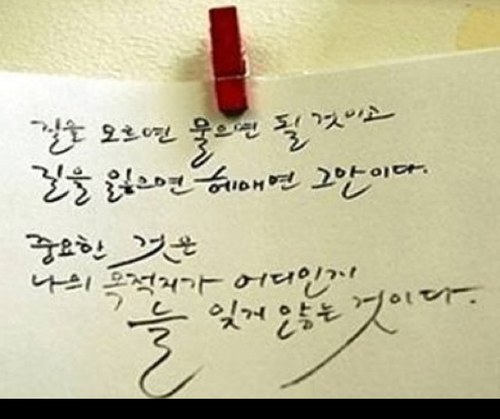 길을 모르면 물으면 될 것이고
길을 잃으면 헤매면 그만이다.
중요한 것은
나의 목적지가 어디인지
늘 잊지 않는 것이다.